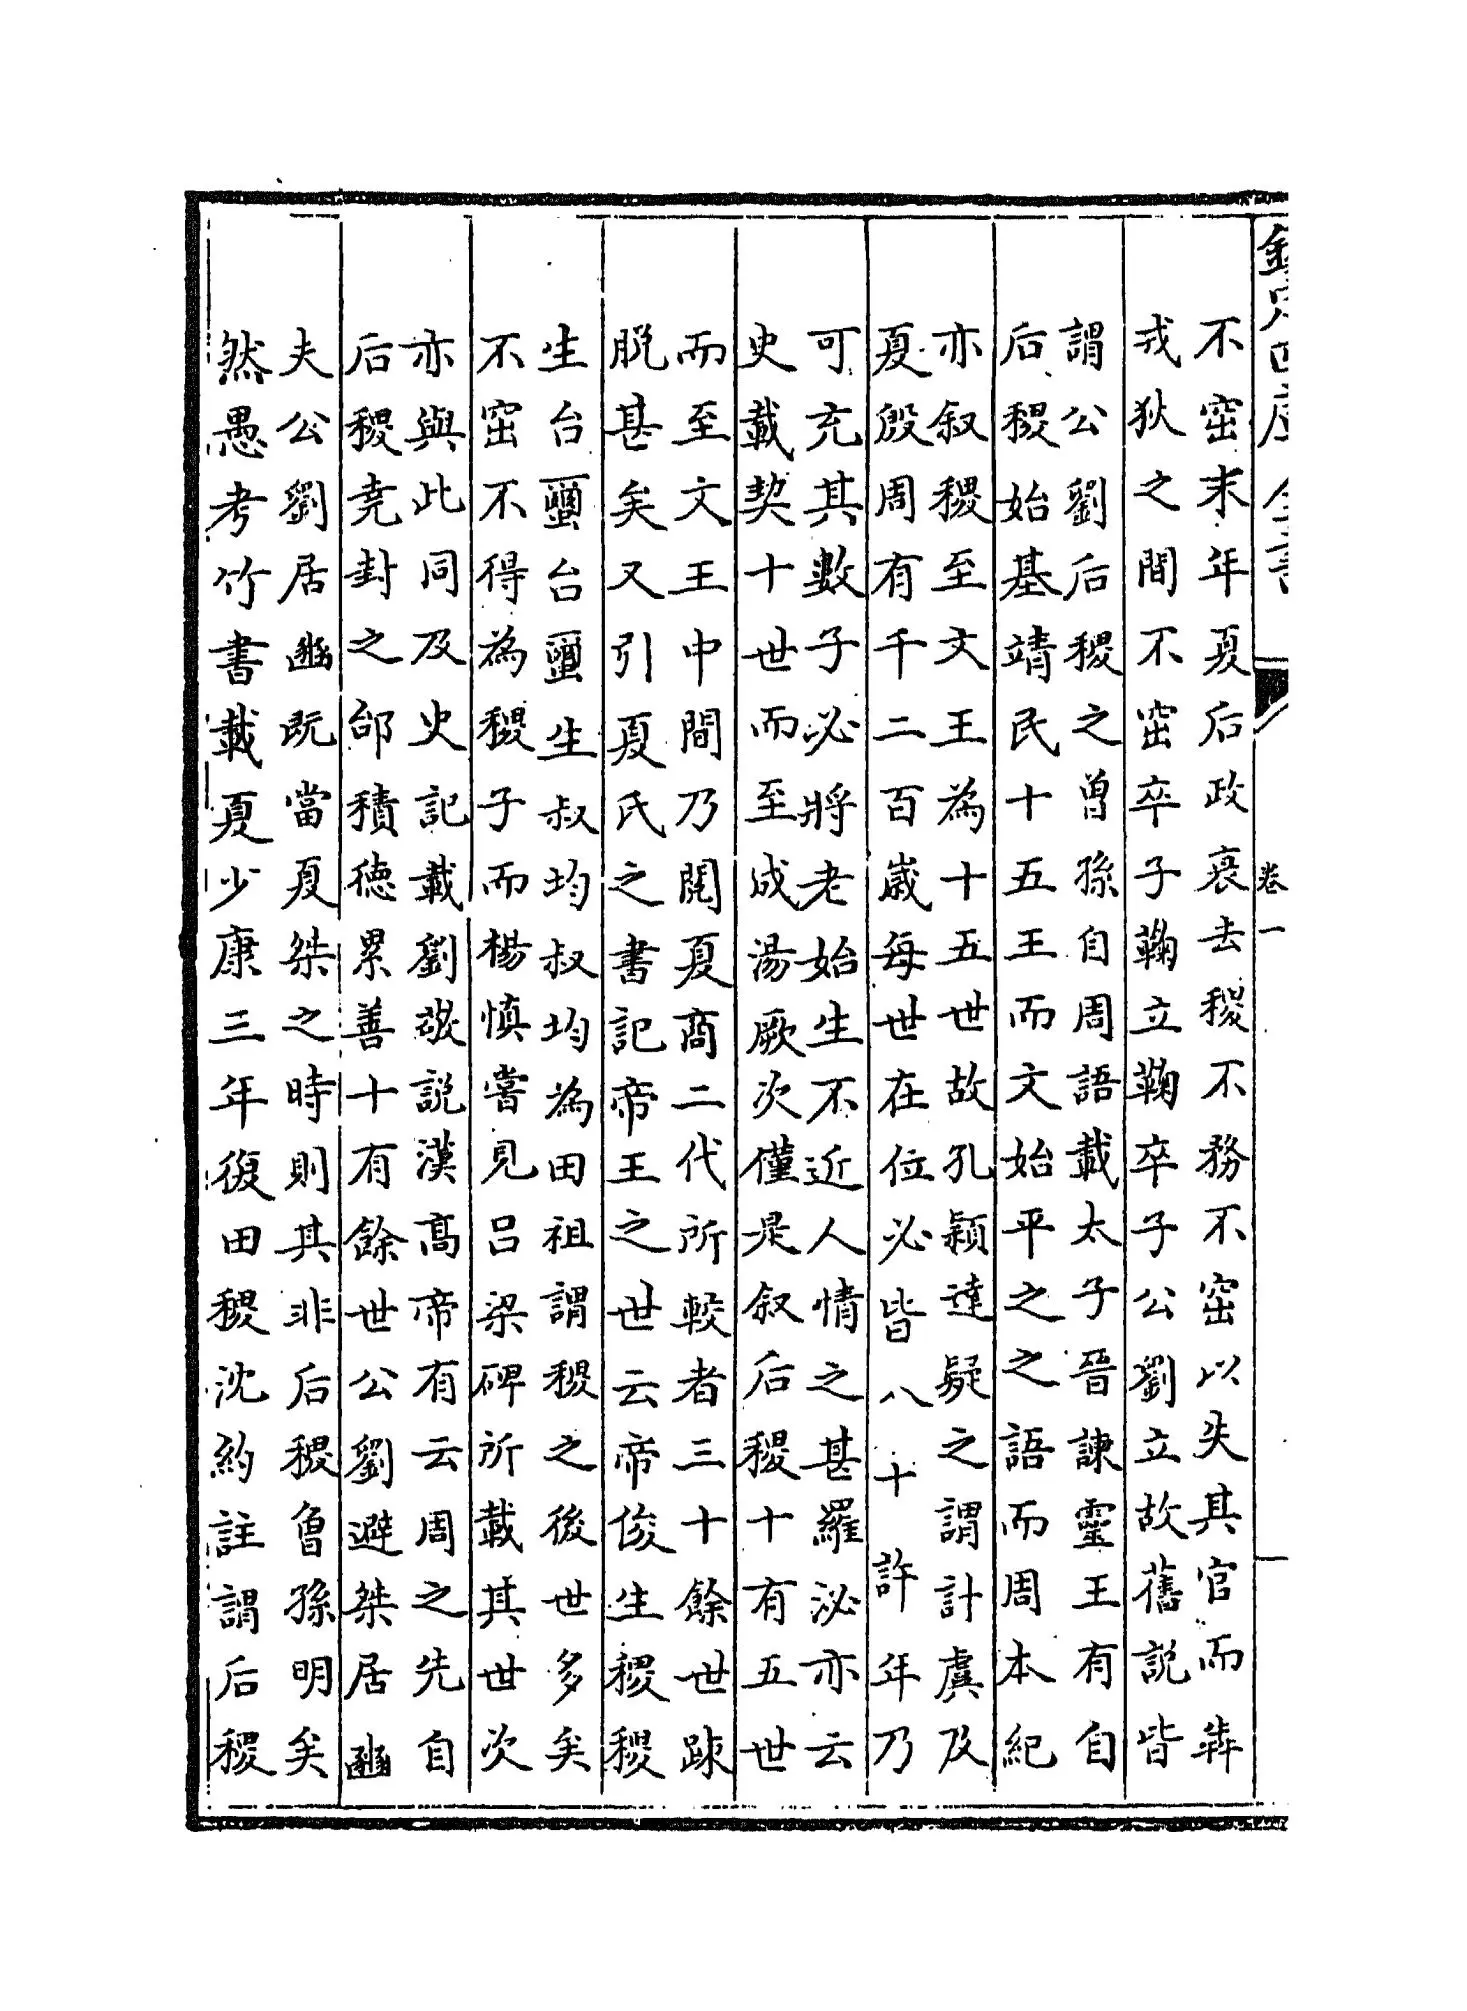 欽定四庫全書
卷一
不窋末年夏后政衰去稷不務不窋以失其官而犇
戎狄之間不窋卒子鞠立鞠卒子公劉立故舊説皆
謂公劉后稷之曾孫自周語載太子晉諫靈王有自
后稷始基靖民十五王而文始平之之語而周本紀
亦叙稷至文王為十五世故孔穎達疑之謂計虞及
夏殷周有千二百歲每世在位必皆八十許年乃
可充其數子必將老始生不近人情之甚羅泌亦云
史載契十世而至成湯厥次僅是叙后稷十有五世
而至文王中間乃閱夏商二代所較者三十餘世踈
脱甚矣又引夏氏之書記帝王之世云帝俊生稷稷
生台璽台璽生叔均叔均為田祖謂稷之後世多矣
不窋不得為稷子而楊慎嘗見吕梁碑所載其世次
亦與此同及史記載劉敬説漢髙帝有云周之先自
后稷堯封之邰積徳累善十有餘世公劉避桀居豳
夫公劉居豳既當夏桀之時則其非后稷曾孫明矣
然愚考竹書載夏少康三年復田稷沈約註謂后稷